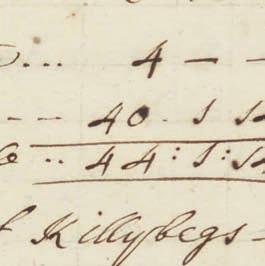 ... 4 — —
-- 40. 1 14
.. 44:1:14
Killybegs -